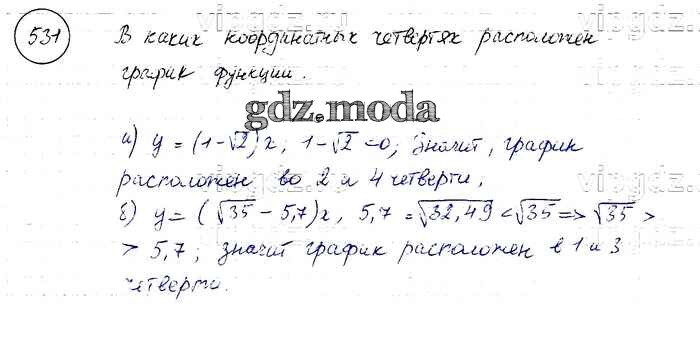 531 В каких координатных четвертях расположен
график функции.
gdz.moda
а) y = (1-√2)x, 1-√2 <0, значит, график
расположен во 2 и 4 четверти,
б) y = (√35 - 5,7)x, 5,7 = √32,49 < √35 => √35 >
> 5,7; значит график расположен в 1 и 3
четверти.